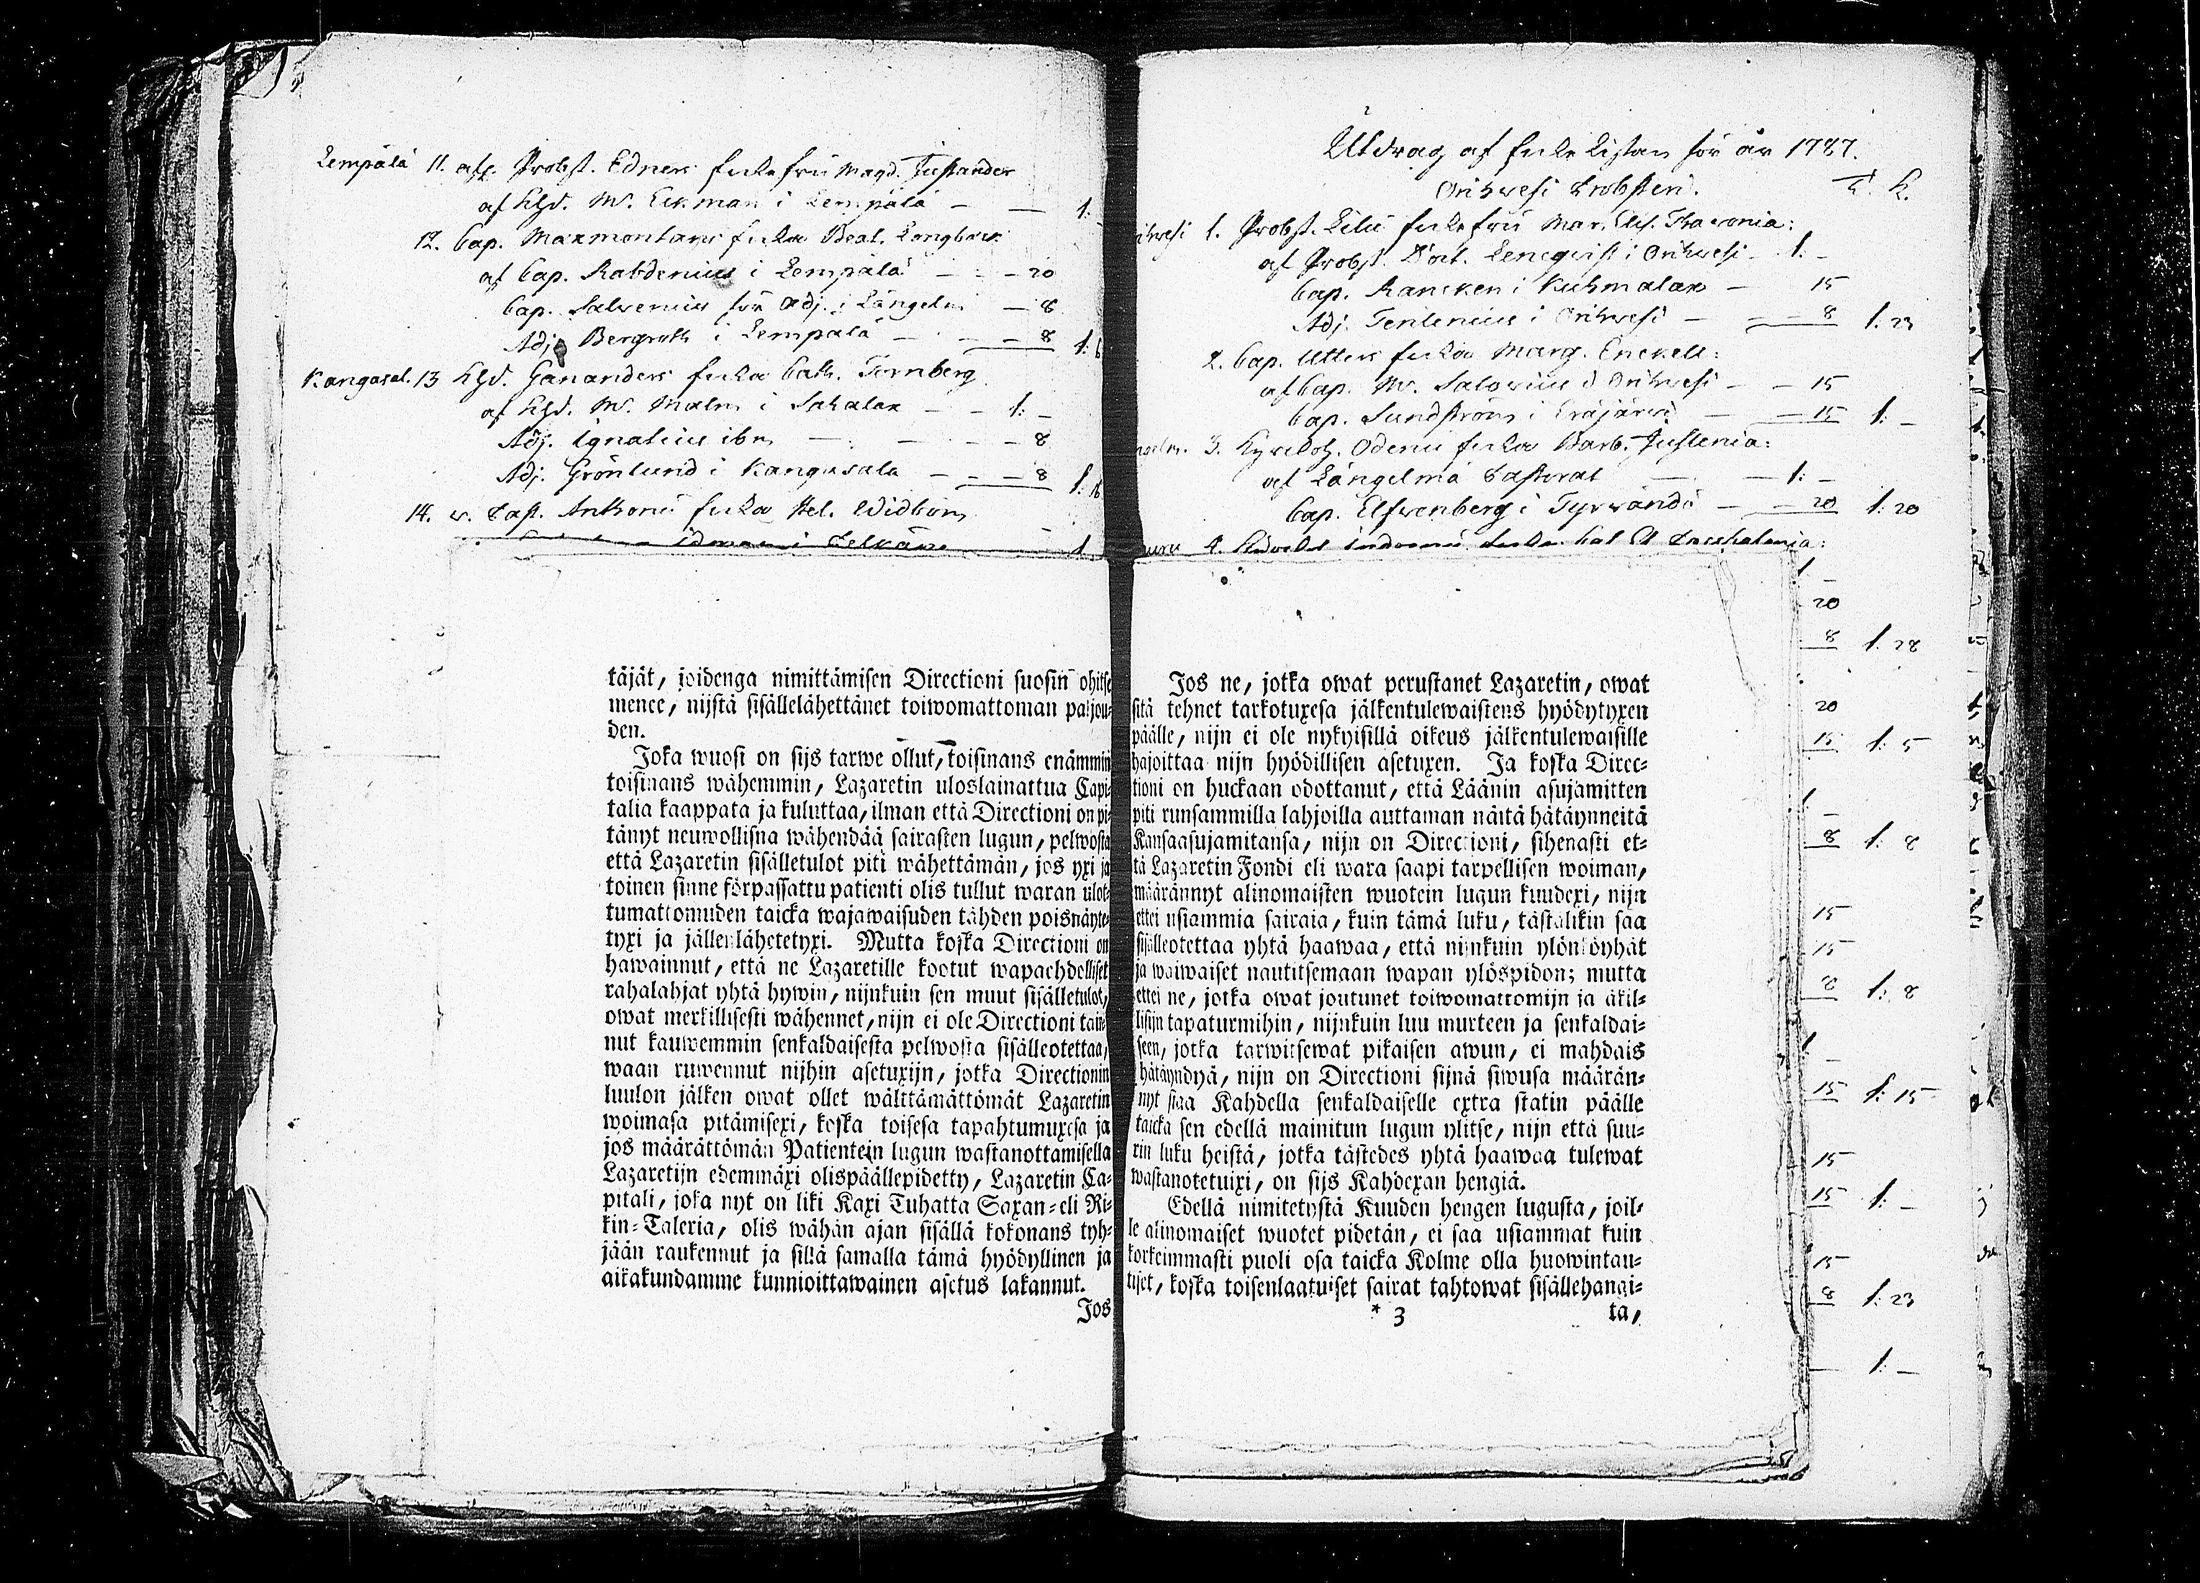 Lempälä 11. aff. Probst. Edners enkefru Magd. Justander
af Hhd. M. Eckman i Lempälä — — 1: -
12. Cap. Maxmontans enka Beat. Longberg
af Cap. Rabdenius i Lempälä — - - 20
Cap. Salvenius för Adj. i Längelm. — 8
Adj. Bergroth i Lempälä — - — 8 1:
Kangasal. 13 Hhd. Gananders enka Cath. Tornberg
af Hhd. M. Malm i Sahalax — - 1: -
Adj. Ignatius ibm — - — - - 8
Adj. Grönlund i Kangasala — - - 8 1: 16
14. v. Past. Anthonii enka Hel. Widbom
idman i Pelkäne — 1.
täjät, joidenga nimittämisen Directioni suosin ohitse
menee, nijstä sisällelähettänet toiwomattoman paljou-
den.
Joka wuosi on sijs tarwe ollut, toisinans enämmin
toisinans wähemmin, Lazaretin uloslainattua Capi-
talia kaappata ja kuluttaa, ilman että Directioni on pi-
tänyt neuwollisna wähendää sairasten lugun, pelwosta
että Lazaretin sisälletulot piti wähettämän, jos yxi ja
toinen sinne förpassattu patienti olis tullut waran ulot-
tumattomuden taicka wajawaisuden tähden poisnäyte-
tyxi ja jällenlähetetyxi. Mutta koska Directioni on
hawainnut, että ne Lazaretille kootut wapaehdolliset
rahalahjat yhtä hywin, nijnkuin sen muut sisälletulot,
owat merkillisesti wähennet, nijn ei ole Directioni tain-
nut kauwemmin senkaldaisesta pelwosta sisälleotettaa,
waan ruwennut nijhin asetuxijn, jotka Directionin
luulon jälken owat ollet wälttämättömät Lazaretin
woimasa pitämisexi, koska toisesa tapahtumuxesa ja
jos määrättömän Patientein lugun wastanottamisella
Lazaretijn edemmäxi olispäällepidetty, Lazaretin Ca-
pitali, joka nyt on liki Kaxi Tuhatta Saxan- eli Ri-
kin-Taleria, olis wähän ajan sisällä kokonans tyh-
jään raukennut ja sillä samalla tämä hyödyllinen ja
aikakundamme kunnioittawainen asetus lakannut.
Jos
Utdrag af Enke Listan för år 1787.
Orihvesi Probsteri. K.
1. Probst. Lilii enkefru Mar. Elis.
af Probst. Doct. Lencqvist i Orihvesi - 1: -
Cap. Rancken i Kuhmalax — 15
Adj. Tenlenius i Orihvesi — — 8 1: 23
2. Cap. Utters enka Marg. Enckell:
af Cap. M. Salovius i Orihvesi - - 15
Cap. Sundström i Eräjärvi — — 15 1: -
3. Kyrckoh. Odenii enka Barb. Juslenia:
af Längelmä Pastorat — 1: -
Cap. Elfvenberg i Tyrvändö — - 20 1: 20
4.
1. -
20
8 1: 28
20
15 1: 5
1. -
8 1: 8
15
15
8 1: 8
1. -
15 1: 15
15
15 1: -
15
8 1: 23
— 1: -
Jos ne, jotka owat perustanet Lazaretin, owat
sitä tehnet tarkotuxesa jälkentulewaistens hyödytyxen
päälle, nijn ei ole nykyisillä oikeus jälkentulewaisille
hajoittaa nijn hyödillisen asetuxen. Ja koska Direc-
tioni on huckaan odottanut, että Läänin asujamitten
piti runsammilla lahjoilla auttaman näitä hätäynneitä
Kansaasujamitansa, nijn on Directioni, sihenasti et-
tä Lazaretin Fondi eli wara saapi tarpellisen woiman,
määrännyt alinomaisten wuotein lugun kuudexi, nijn
ettei usiammia sairaia, kuin tämä luku, tästälikin saa
sisälleotettaa yhtä haawaa, että nijnkuin ylönköyhät
ja waiwaiset nautitsemaan wapan ylöspidon; mutta
ettei ne, jotka owat joutunet toiwomattomijn ja äkil-
lisijn tapaturmihin, nijnkuin luu murteen ja senkaldai-
seen, jotka tarwitsewat pikaisen awun, ei mahdais
hätäyndyä, nijn on Directioni sijnä siwusa määrän-
nyt siaa Kahdella senkaldaiselle extra statin päälle
taicka sen edellä mainitun lugun ylitse, nijn että suu-
rin luku heistä, jotka tästedes yhtä haawaa tulewat
wastanotetuixi, on sijs Kahdexan hengiä.
Edellä nimitetystä Kuuden hengen lugusta, joil-
le alinomaiset wuotet pidetän, ei saa usiammat kuin
korkeimmasti puoli osa taicka Kolme olla huowintau-
tiset, koska toisenlaatuiset sairat tahtowat sisällehangi-
* 3 ta,